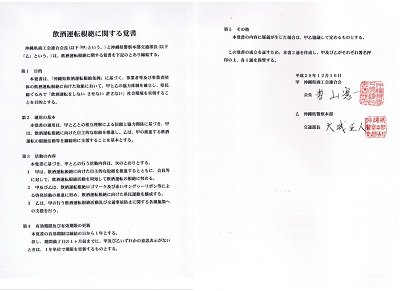 飲酒運転根絶に関する覚書
沖縄県商工会連合会長(以下「甲」という。)と沖縄県警察本部交通部長(以下
「乙」という。)は、飲酒運転根絶に関する覚書を下記のとおり締結する。
第1 目的
本覚書は、「沖縄県飲酒運転根絶条例」に基づく、事業者等及び事業者団体
の飲酒運転根絶に向けた取組において、甲と乙の協力体制を確立し、県民
総ぐるみで「飲酒運転をしない させない 許さない」社会環境を実現すること
を目的とする。
第2 運用の基本
本覚書の運用は、甲と乙の相互理解による信頼と協力関係に基づき、甲
は、飲酒運転根絶に向けた自主的な取組を推進し、乙は、甲の推進する飲酒
運転の根絶活動等を継続的に支援することを基本とする。
第3 活動の内容
本覚書に基づき、甲と乙の行う活動内容は、次のとおりとする。
1 甲は、飲酒運転根絶に向けた自主的な取組を推進するとともに、会員等に
対して、飲酒運転根絶活動を周知して飲酒運転の根絶に努める。
2 甲及び乙は、飲酒運転根絶ロゴマーク及び赤いサングヮーリボン等によ
る啓発活動を推進に努め、飲酒運転根絶に向けた県民運動を構成する。
3 乙は、甲の行う飲酒運転根絶活動及び交通事故防止に関する各種施策へ
の支援を行う。
第4 有効期間及び有効期間の更新
本覚書の有効期間は締結の日から1年とする。
但し、期間満了日の1か月前までに、甲及び乙いずれかの意思表示がない
ときは、1年単位で期限を更新するものとする。
第5 その他
本覚書の内容に疑義が生じた場合は、甲乙協議して定めるものとする。
この覚書の成立を証するため、本書2通を作成し、甲及び乙がそれぞれ署名押
印の上、各1通を保管する。
平成28年12月19日
甲 沖縄県商工会連合会
会長
乙 沖縄県警察本部
交通部長 大城正人